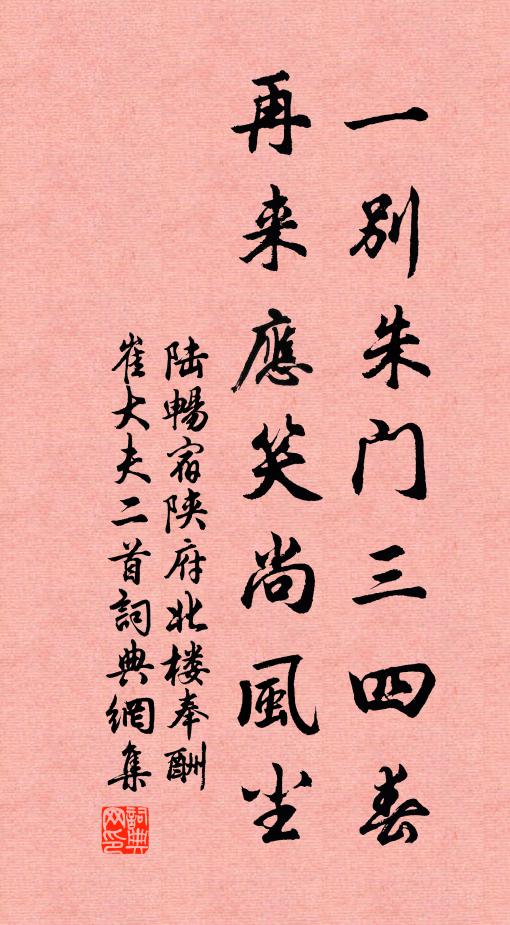 一别朱门三四春
再来應笑尚風尘
陆暢宿陕府北楼奉酬
崔大夫二首詞典網集
詞典网印